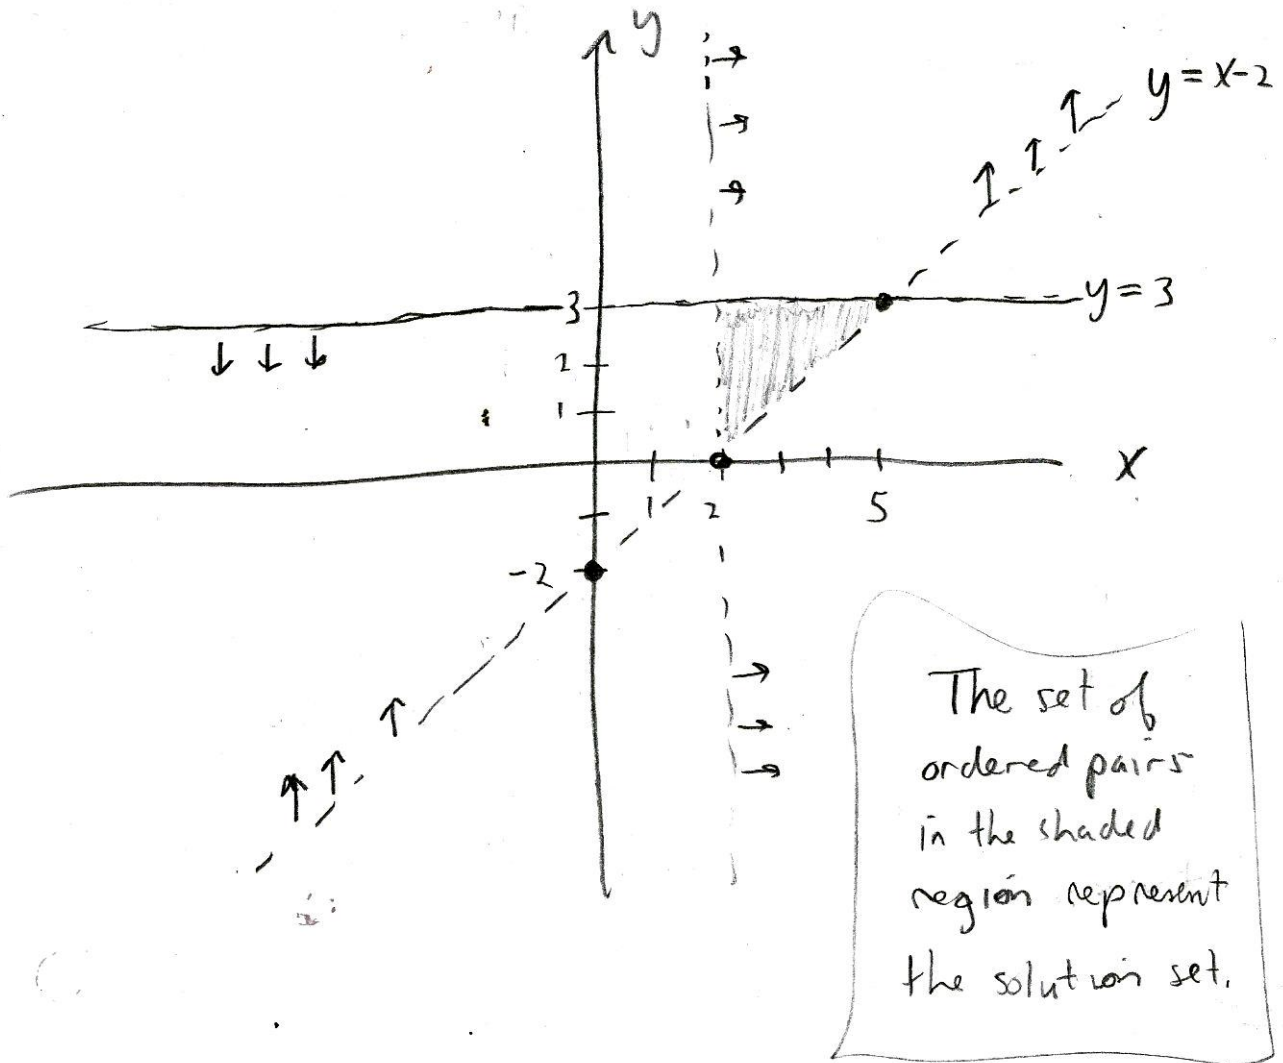 y
y = x-2
3
y = 3
2
1
x
1
2
5
-2
The set of
ordered pairs
in the shaded
region represent
the solution set.